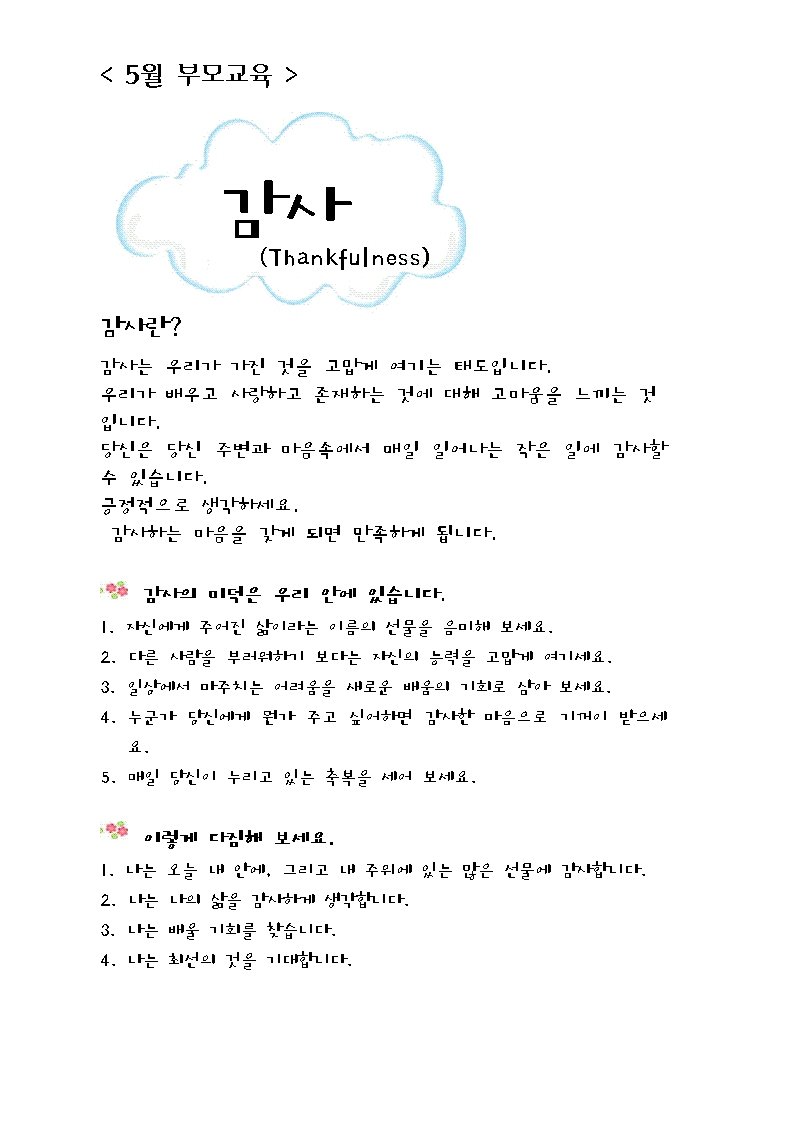 < 5월 부모교육 >
감사
(Thankfulness)
감사란?
감사는 우리가 가진 것을 고맙게 여기는 태도입니다.
우리가 배우고 사랑하고 존재하는 것에 대해 고마움을 느끼는 것
입니다.
당신은 당신 주변과 마음속에서 매일 일어나는 작은 일에 감사할
수 있습니다.
긍정적으로 생각하세요.
감사하는 마음을 갖게 되면 만족하게 됩니다.
감사의 미덕은 우리 안에 있습니다.
1. 자신에게 주어진 삶이라는 이름의 선물을 음미해 보세요.
2. 다른 사람을 부러워하기 보다는 자신의 능력을 고맙게 여기세요.
3. 일상에서 마주치는 어려움을 새로운 배움의 기회로 삼아 보세요.
4. 누군가 당신에게 뭔가 주고 싶어하면 감사한 마음으로 기꺼이 받으세
요.
5. 매일 당신이 누리고 있는 축복을 세어 보세요.
이렇게 다짐해 보세요.
1. 나는 오늘 내 안에, 그리고 내 주위에 있는 많은 선물에 감사합니다.
2. 나는 나의 삶을 감사하게 생각합니다.
3. 나는 배울 기회를 찾습니다.
4. 나는 최선의 것을 기대합니다.